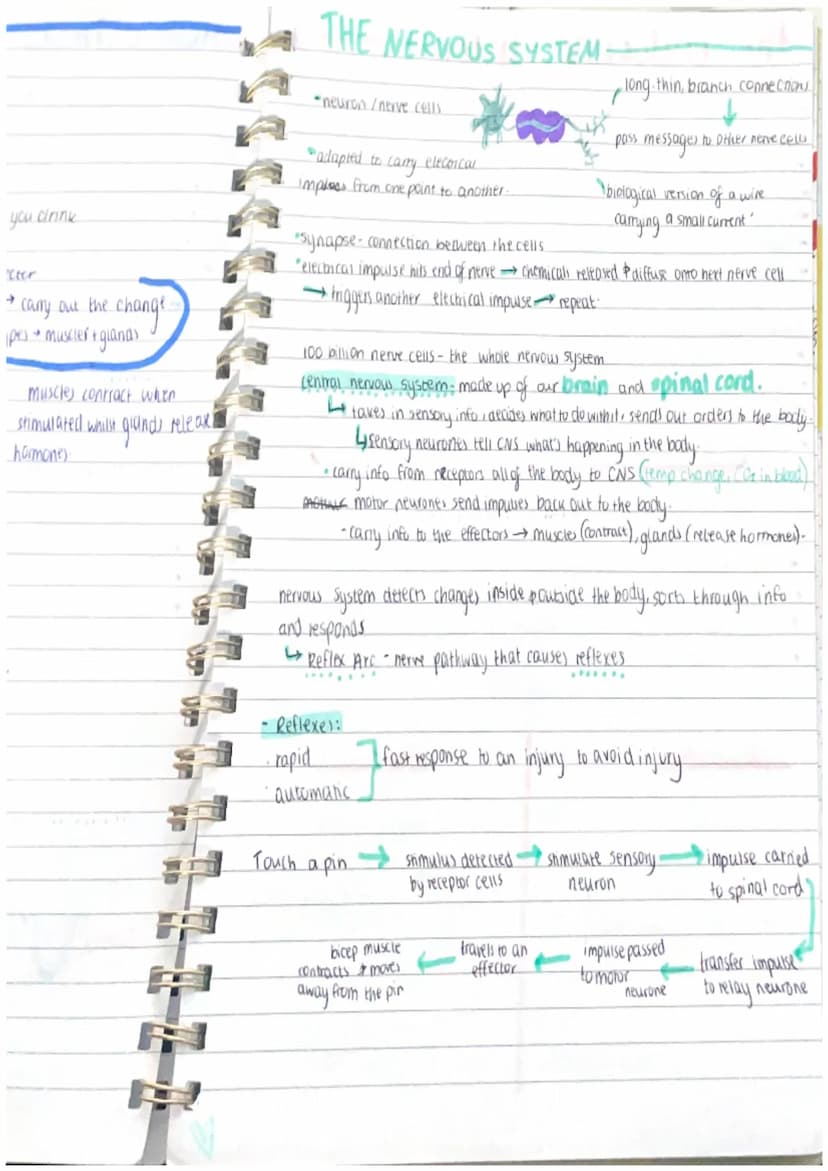 you drink
→ carry out the change
→ muscles + glands
muscles contract when
stimulated whilst glands release
hormones.
THE NERVOUS SYSTEM
•neuron / nerve cells
long, thin, branch connections
pass messages to other nerve cells
•adapted to carry electrical
from one point to another.
'biological version of a wire
carrying a small current'
•synapse - connection between the cells
•electrical impulse hits end of nerve → chemicals released & diffuse onto next nerve cell
→ triggers another electrical impulse → repeat.
100 billion nerve cells - the whole nervous system
central nervous system: made up of our brain and spinal cord.
↳ takes in sensory info, decides what to do with it, sends out orders to the body.
↳ sensory neurones tell CNS what's happening in the body.
• carry info from receptors all of the body to CNS (temp change, in blood)
motor neurones send impulses back out to the body.
- carry info to the effectors → muscles (contract), glands (release hormones).
nervous system detects changes inside & outside the body, sorts through info
and responds
↳ Reflex Arc - nerve pathway that causes reflexes
- Reflexes:
. rapid
. automatic
fast response to an injury to avoid injury
Touch a pin → stimulus detected → stimulate sensory → impulse carried
by receptor cells neuron to spinal cord
transfer impulse
to relay neurone
← impulse passed
to motor
neurone
← travels to an
effector
← bicep muscle
contracts & moves
away from the pin